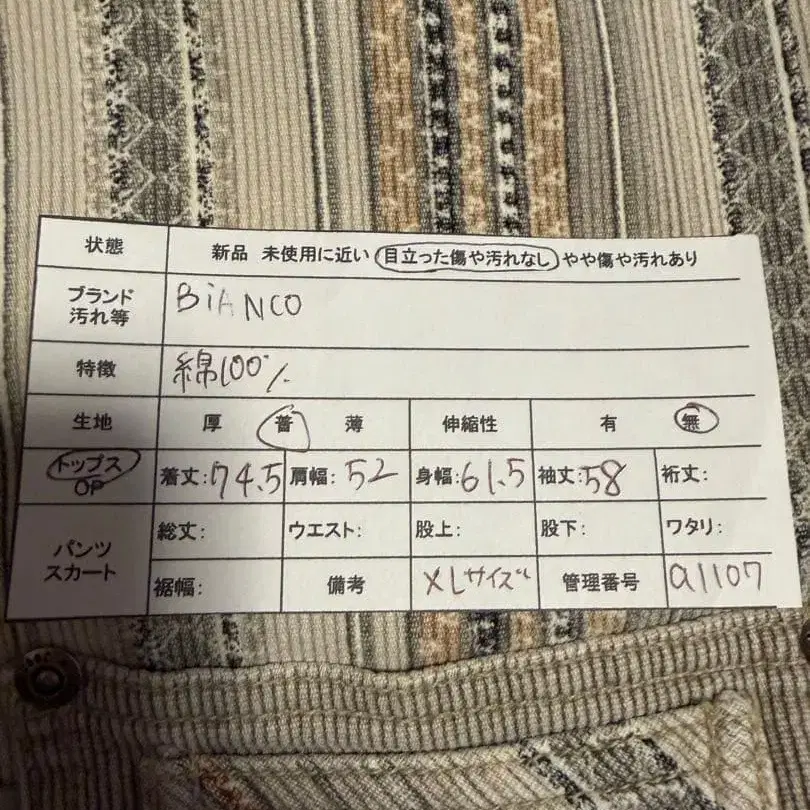 状態 新品 未使用に近い 目立った傷や汚れなし やや傷や汚れあり
ブランド BiANCO
汚れ等
特徴 綿100%
生地 厚 普 薄 伸縮性 有 無
トップス 着丈:74.5 肩幅:52 身幅:61.5 袖丈:58 裄丈:
OP
総丈: ウエスト: 股上: 股下: ワタリ:
パンツ
スカート
裾幅: 備考 XLサイズ 管理番号 a1107